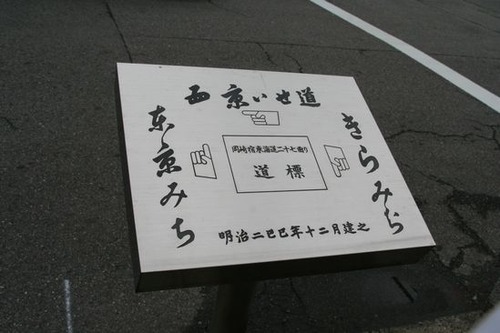 西京いせ道
東京みち
きらみち
岡崎宿東海道二十七曲り
道標
明治二己巳年十二月建之